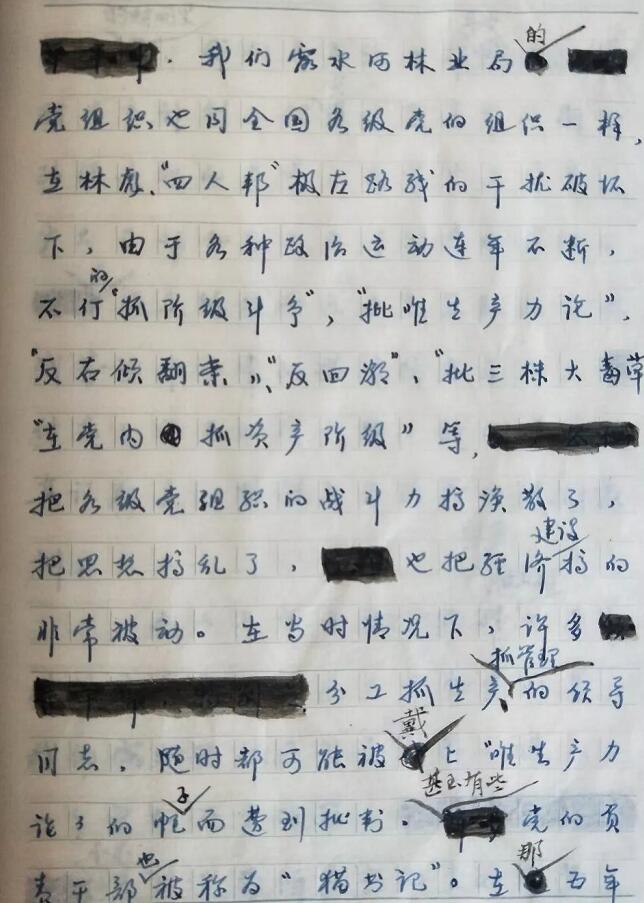 我们露水河林业局的
党组织也同全国各级党的组织一样,
在林彪、“四人邦”极左路线的干扰破坏
下,由于各种政治运动连年不断,
不行的“抓阶级斗争”,“批唯生产力论”,
“反右倾翻案”、“反回潮”、“批三株大毒草
“在党内抓资产阶级”等,
把各级党组织的战斗力搞涣散了,
把思想搞乱了,也把经济建设搞的
非常被动。在当时情况下,许多
分工抓生产抓管理的领导
同志,随时都可能被戴上“唯生产力
论”的帽子而遭到批判。甚至有些党的负
责干部也被称为“猫书记”。在那五年